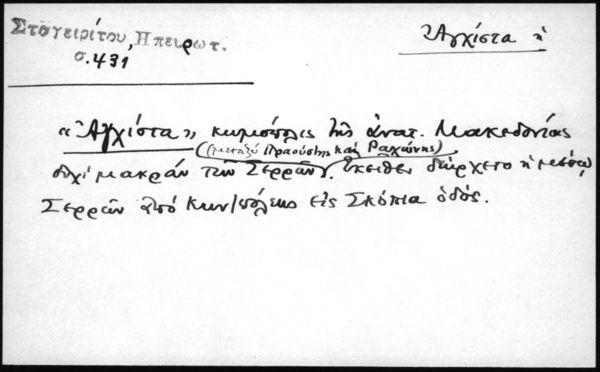 Σταγειρίτου, Ηπειρωτ.
σ. 431
Ἀγχίστα ἡ
«Ἀγχίστα» κωμόπολις τῆς ἀνατ. Μακεδονίας
(μεταξὺ Πραούστης καὶ Ραχώνης)
οὐχὶ μακρὰν τῶν Σερρῶν. Ἐκεῖθεν διήρχετο ἡ μέσῳ
Σερρῶν ἀπὸ Κων/πόλεως εἰς Σκόπια ὁδός.